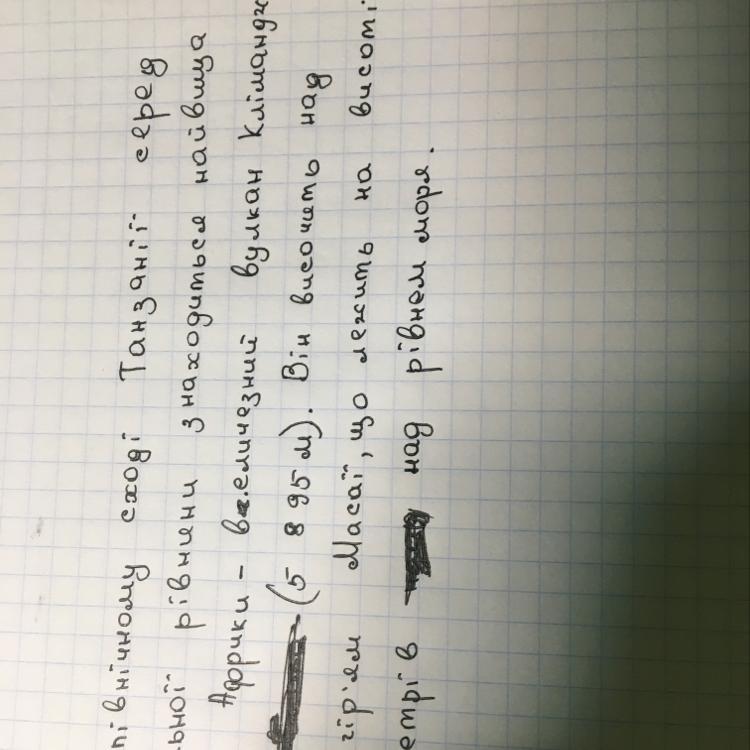 північному сході Танзанії серед
ьної рівнини знаходиться найвища
Африки - величезний вулкан Клімандж
(5 895 м). Він височить над
гір'ям Масаї, що лежить на висоті
етрів над рівнем моря.